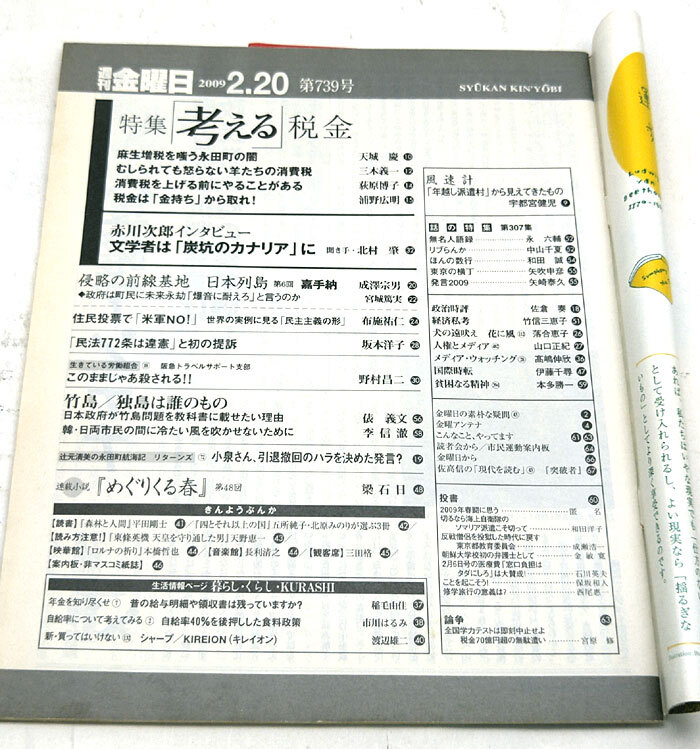 週刊金曜日 2009 2.20 第739号
SYŪKAN KIN'YŌBI
特集「考える」税金
麻生増税を嗤う永田町の闇 天城 慶 10
むしられても怒らない羊たちの消費税 三木義一 12
消費税を上げる前にやることがある 荻原博子 14
税金は「金持ち」から取れ! 浦野広明 15
赤川次郎インタビュー
文学者は「炭坑のカナリア」に 聞き手・北村 肇 32
侵略の前線基地 日本列島 第6回 嘉手納 成澤宗男 20
◆政府は町民に未来永劫「爆音に耐えろ」と言うのか 宮城篤実 22
住民投票で「米軍NO!」 世界の実例に見る「民主主義の形」 布施祐仁 24
「民法772条は違憲」と初の提訴 坂本洋子 28
生きている労働組合 阪急トラベルサポート支部
このままじゃあ殺される!! 野村昌二 30
竹島/独島は誰のもの
日本政府が竹島問題を教科書に載せたい理由 俵 義文 56
韓・日両市民の間に冷たい風を吹かせないために 李信澈 58
辻元清美の永田町航海記 リターンズ 小泉さん、引退撤回のハラを決めた発言? 19
連載小説 『めぐりくる春』 第48回 梁石日 48
きんようぶんか
【読書】「森林と人間」平田剛士 41 /「四とそれ以上の国」五所純子・北原みのりが選ぶ3冊 42
【読み方注意!】「東條英機 天皇を守り通した男」天野恵一 43
【映華館】「ロルナの祈り」本橋哲也 44 /【音楽館】長利清之 44 /【観客席】三田格 45
【案内板・非マスコミ雑誌】 46
生活情報ページ 暮らし・くらし・KURASHI
年金を知り尽くせ ① 昔の給与明細や領収書は残っていますか? 稲毛由佳 37
自給率について考えてみる ② 自給率40%を後押しした食料政策 市川はるみ 38
新・買ってはいけない シャープ/KIREION(キレイオン) 渡辺雄二 40
風速計
「年越し派遣村」から見えてきたもの
宇都宮健児 9
話の特集 第307集
無名人語録 永 六輔 52
リブらんか 中山千夏 52
ほんの数行 和田 誠 54
東京の横丁 矢吹申彦 55
発言2009 矢崎泰久 55
政治時評 佐倉 奏 18
経済私考 竹信三恵子 51
犬の遠吠え 花に風 落合恵子 26
人権とメディア 山口正紀 27
メディア・ウォッチング 高嶋伸欣 36
国際時転 伊藤千尋 47
貧困なる精神 本多勝一 59
金曜日の素朴な疑問 2
金曜アンテナ 4
こんなこと、やってます 61 63
読者会から/市民運動案内板 64
金曜日から 66
佐高信の「現代を読む」 『突破者』 67
投書 60
2009年春闘に思う 匿 名
切るなら海上自衛隊の
ソマリア派遣こそ切って 和田洋子
反戦僧侶を役獄した時代に戻す
東京都教育委員会 成瀬浩一
朝鮮大学校初の弁護士として 金敏寛
2月6日号の医療費「窓口負担は
タダにしろ」は大賛成! 石川英夫
ことを起こそう! 保坂和人
修学旅行の意義は? 西尾恵
論争 63
全国学力テストは即刻中止せよ
税金70億円超の無駄遣い 宮原 修